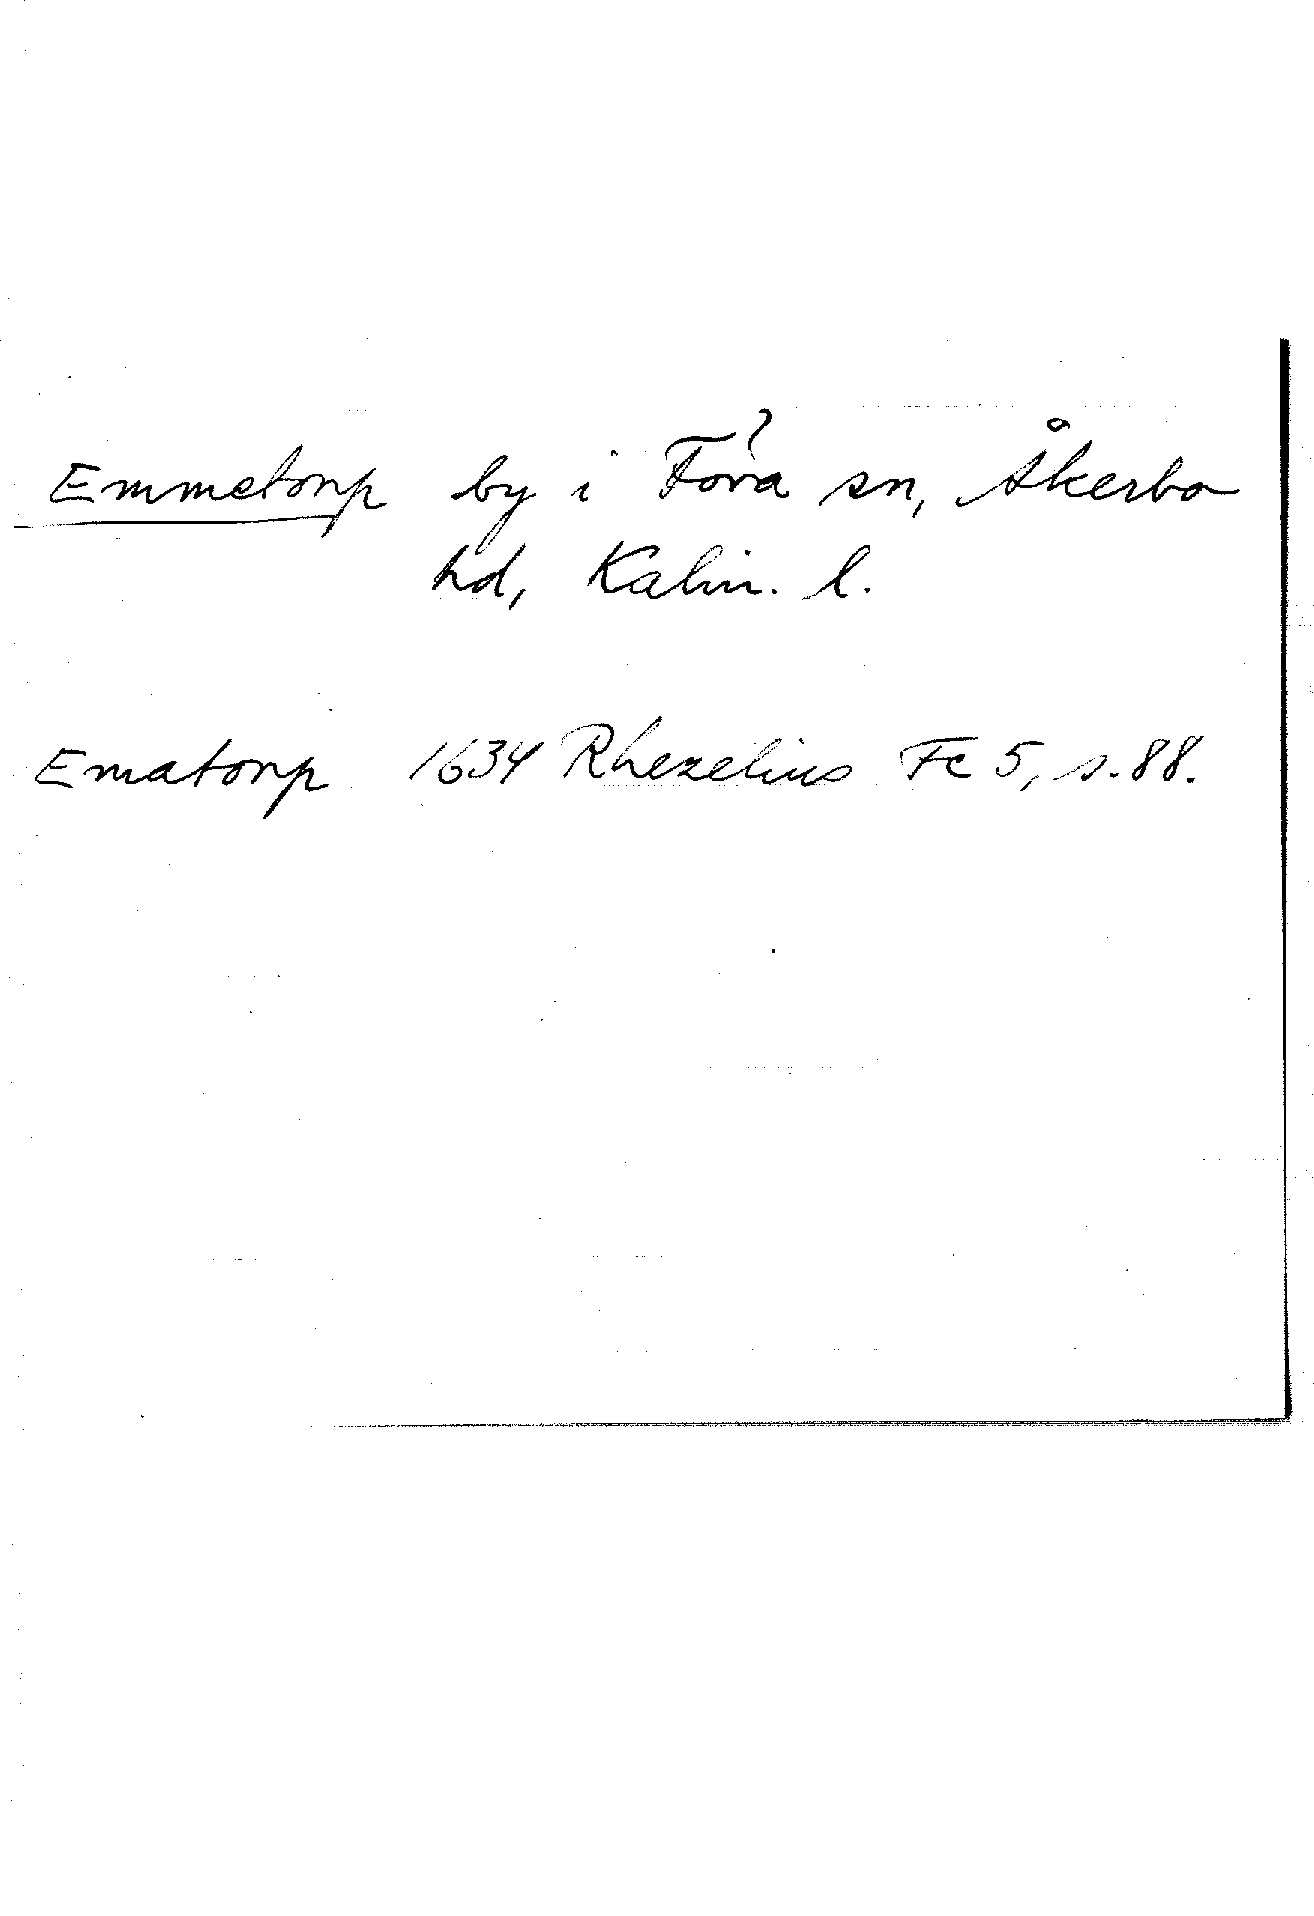 Emmetorp by i Föra sn, Åkerbo
hd, Kalm. l.
Ematorp 1634 Rhezelius Fc 5, s. 88.